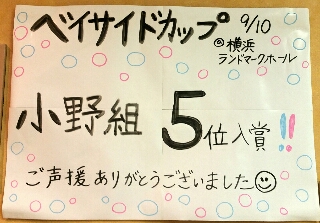 ベイサイドカップ 9/10
@横浜
ランドマークホール
小野組 5位入賞!!
ご声援ありがとうございました☺